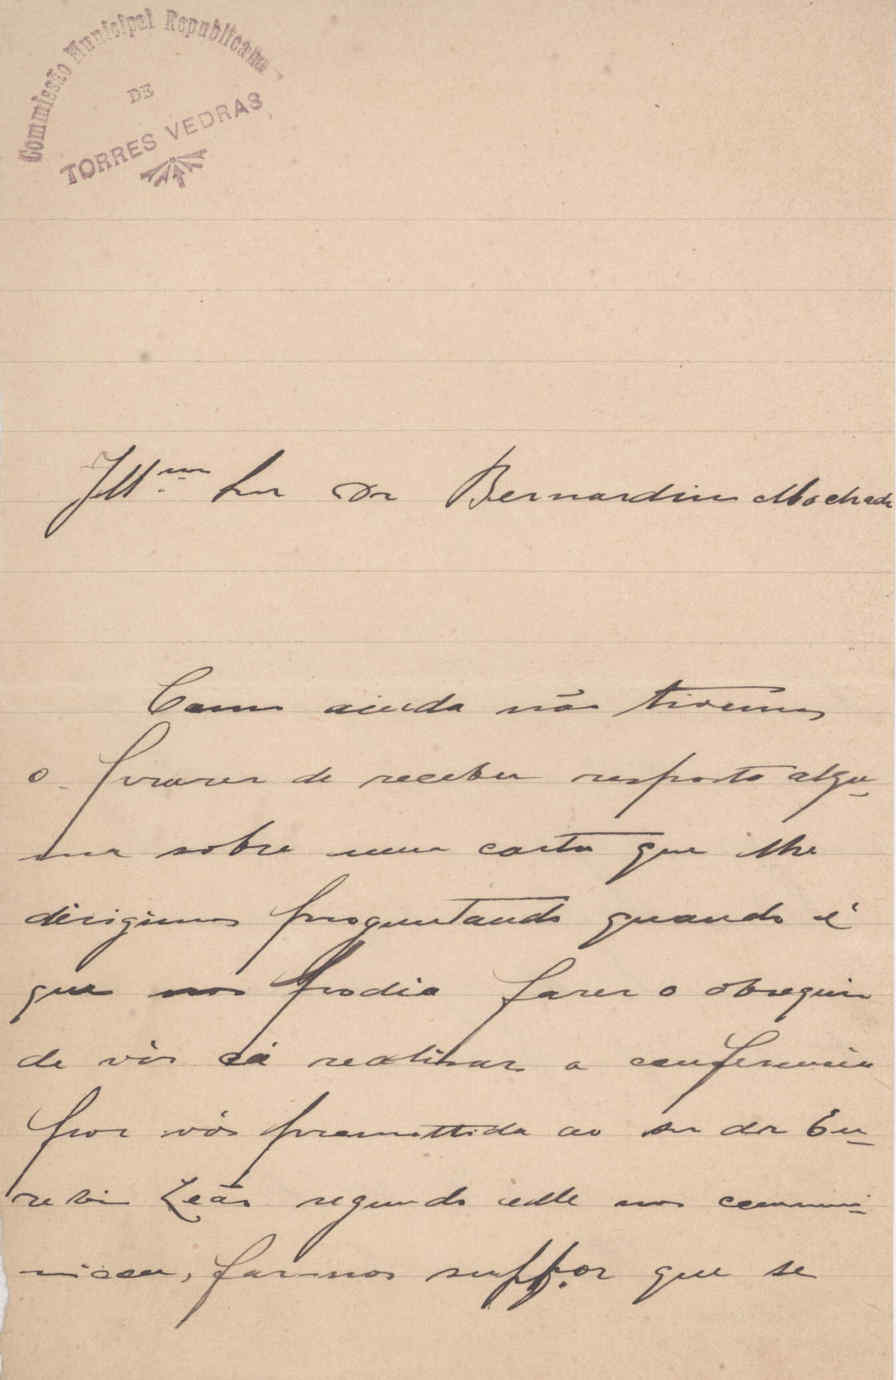 Commissão Municipal Republicana
DE
TORRES VEDRAS
Ill.mo Snr Dr Bernardino Machado
Como ainda não tivemos
o prazer de receber resposta algu-
ma sobre uma carta que lhe
dirigimos preguntando quando é
que nos podia fazer o obsequio
de vir cá realisar a conferencia
por vós promettida ao sr dor Eu-
zebio Leão segundo elle nos commu-
nicou, faz-nos suppor que se